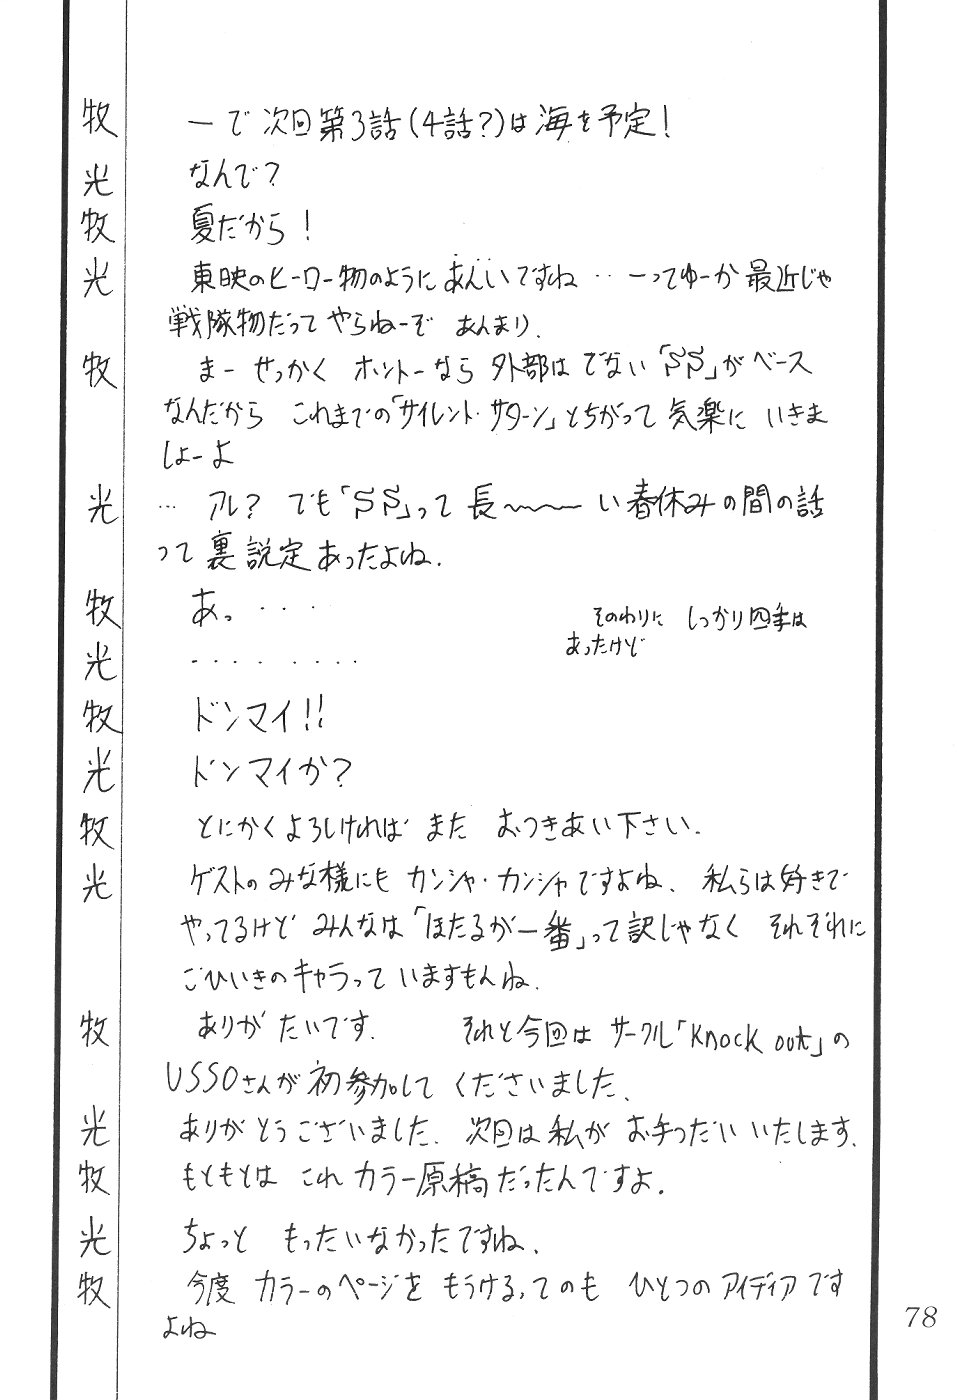 牧 ーで 次回第3話(4話?)は海を予定!
光 なんで?
牧 夏だから!
光 東映のヒーロー物のようにあんいですね ‥ ーってゆーか 最近じゃ
戦隊物だって やらねーぞ あんまり.
牧 まー せっかく ホントーなら 外部は でない「SS」がベース
なんだから これまでの「サイレント・サターン」とちがって 気楽に いきま
しょーよ
光 … アレ? でも「SS」って 長〜〜〜い春休みの間の話
って 裏設定あったよね.
牧 あっ・・・・
そのわりに しっかり四季は
あったけど
光 ・・・・・・・・
牧 ドンマイ!!
光 ドンマイか?
牧 とにかくよろしければ また おつきあい下さい.
光 ゲストの みな様にも カンシャ・カンシャですよね、 私らは好きで
やってるけど みんなは「ほたるが一番」って訳じゃなく それぞれに
ごひいきのキャラって いますもんね.
牧 ありがたいです. それと今回は サークル「Knock out」の
USSOさんが初参加して くださいました、
光 ありがとうございました. 次回は私が お手つだい いたします.
牧 もともとは これ カラー原稿だったんですよ.
光 ちょっと もったいなかったですね.
牧 今度 カラーのページを もうけるってのも ひとつの アイディアです
よね
78